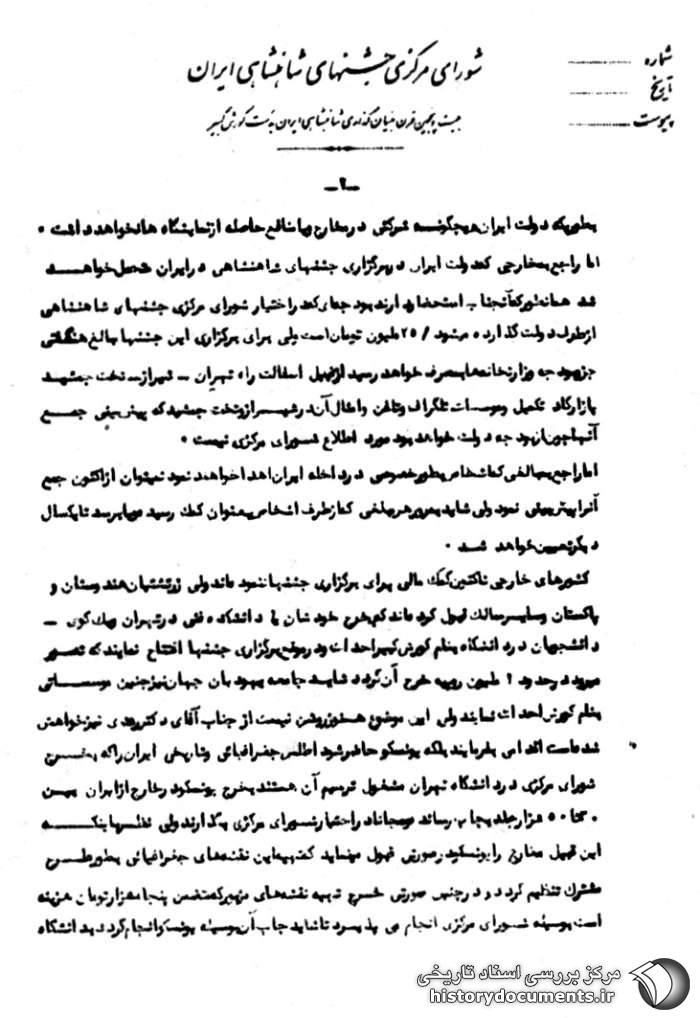 شماره
تاریخ
پیوست
شورای مرکزی جشنهای شاهنشاهی ایران
بیست و پنجمین قرن بنیان گذاری شاهنشاهی ایران بدست کورش کبیر
-۲-
بطوریکه دولت ایران هیچگونه شرکتی در مخارج و یا منافع حاصله از نمایشگاه ها نخواهد داشت .
اما راجع بمخارجی که دولت ایران در برگزاری جشنهای شاهنشاهی در ایران متحمل خواهد
شد همانطور که آنجناب استحضار دارند بودجه‌ای که در اختیار شورای مرکزی جشنهای شاهنشاهی
از طرف دولت گذارده میشود / ۲۵ ملیون تومان است ولی برای برگزاری این جشنها مبالغ هنگفتی
جزو بودجه وزارتخانه ها بمصرف خواهد رسید از قبیل اسفالت راه تهران - شیراز - تخت جمشید
پازارگاد تکمیل موسسات تلگراف و تلفن و امثال آن در شیراز و تخت جمشید که پیش بینی جمع
آنها چون از بودجه دولت خواهد بود مورد اطلاع شورای مرکزی نیست .
اما راجع بمبالغی که اشخاص بطور خصوصی در داخله ایران اهدا خواهند نمود نمیتوان از اکنون جمع
آنرا پیش بینی نمود ولی شاید بمرور هر مبلغی که از طرف اشخاص بعنوان کمک رسید میرسد تا یکسال
دیگر تعیین خواهد شد .
کشورهای خارجی تاکنون کمک مالی برای برگزاری جشنها ننموده‌اند ولی زرتشتیان هندوستان و
پاکستان و سایر ممالک قبول کرده‌اند که بخرج خودشان یا دانشکده فنی در تهران و یک کوی -
دانشجویان در دانشگاه بنام کورش کبیر احداث و در موقع برگزاری جشنها افتتاح نمایند که تصور
میرود در حدود ملیون روپیه خرج آن گردد شاید جامعه یهودیان جهان نیز چنین موسساتی
بنام کورش احداث نمایند ولی این موضوع هنوز روشن نیست از جناب آقای دکتر نیز خواهش
شده است اقدامی بفرمایند بلکه یونسکو حاضر شود اطلس جغرافیائی و تاریخی ایران را که بخرج
شورای مرکزی در دانشگاه تهران مشغول ترسیم آن هستند بخرج یونسکو در خارج از ایران بین
تا ۵۰ هزار جلد بچاپ رساند و مجانا در اختیار شورای مرکزی بگذارند ولی نظر باینکه
این قبیل مخارج را یونسکو در صورتی قبول مینماید که تهیه این نقشه های جغرافیائی بطور طرح
مشترک تنظیم گردد و در چنین صورتی خرج تهیه نقشه های مزبور که متضمن پنجاه هزار تومان هزینه
است بوسیله شورای مرکزی انجام می پذیرد تا شاید چاپ آن بوسیله یونسکو انجام گردد بدانشگاه
مرکز بررسی اسناد تاریخی
historydocuments.ir